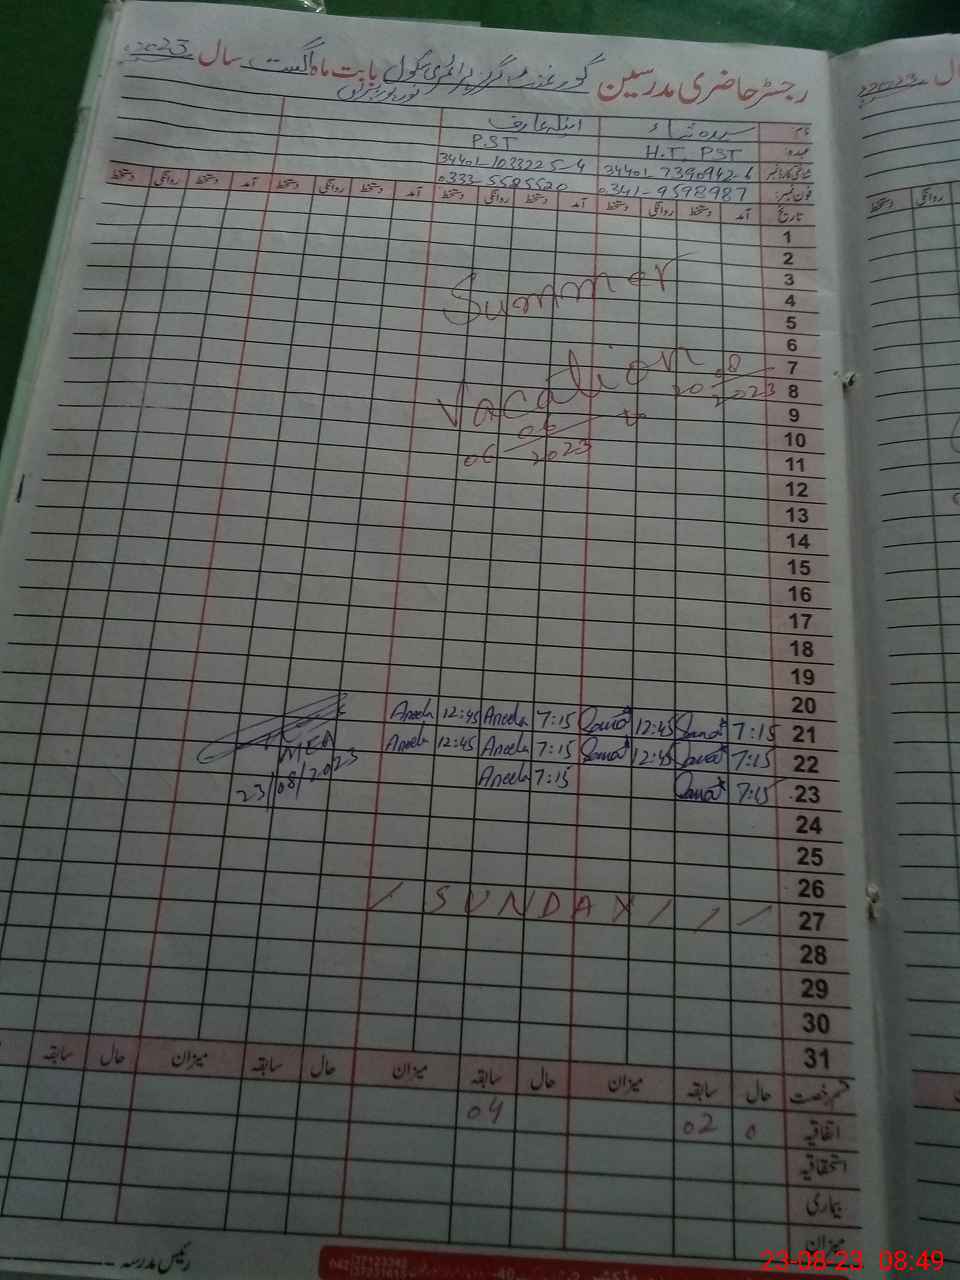 رجسٹر حاضری مدرسین گورنمنٹ گرلز پرائمری سکول بابت ماہ اگست سال 2023
نام سیدہ ثناء انیلہ عارف
عہدہ: H.T, PST P.ST
34401-7390942-6 34401-1033225-4
فون نمبر: 0341-9598987 0333-5585520
تاریخ آمد دستخط روانگی دستخط آمد دستخط روانگی دستخط آمد دستخط روانگی دستخط آمد دستخط روانگی دستخط
1
2
3
Summer
4
5
6
7
Vacation
8
06/06/2023 to 20/08/2023
9
10
11
12
13
14
15
16
17
18
19
20
Aneela 12:45 Aneela 7:15 Sana 12:45 Sana 7:15 21
Aneela 12:45 Aneela 7:15 Sana 12:45 Sana 7:15 22
MEA
23/08/2023
Aneela 7:15 Sana 7:15 23
24
25
26
/ SUNDAY / / / 27
28
29
30
31
قسم رخصت حال سابقہ میزان حال سابقہ میزان حال سابقہ میزان حال سابقہ
اتفاقیہ 0 02 04
استحقاقیہ
بیماری
میزان
رئیس مدرسہ
23-08-23 08:49